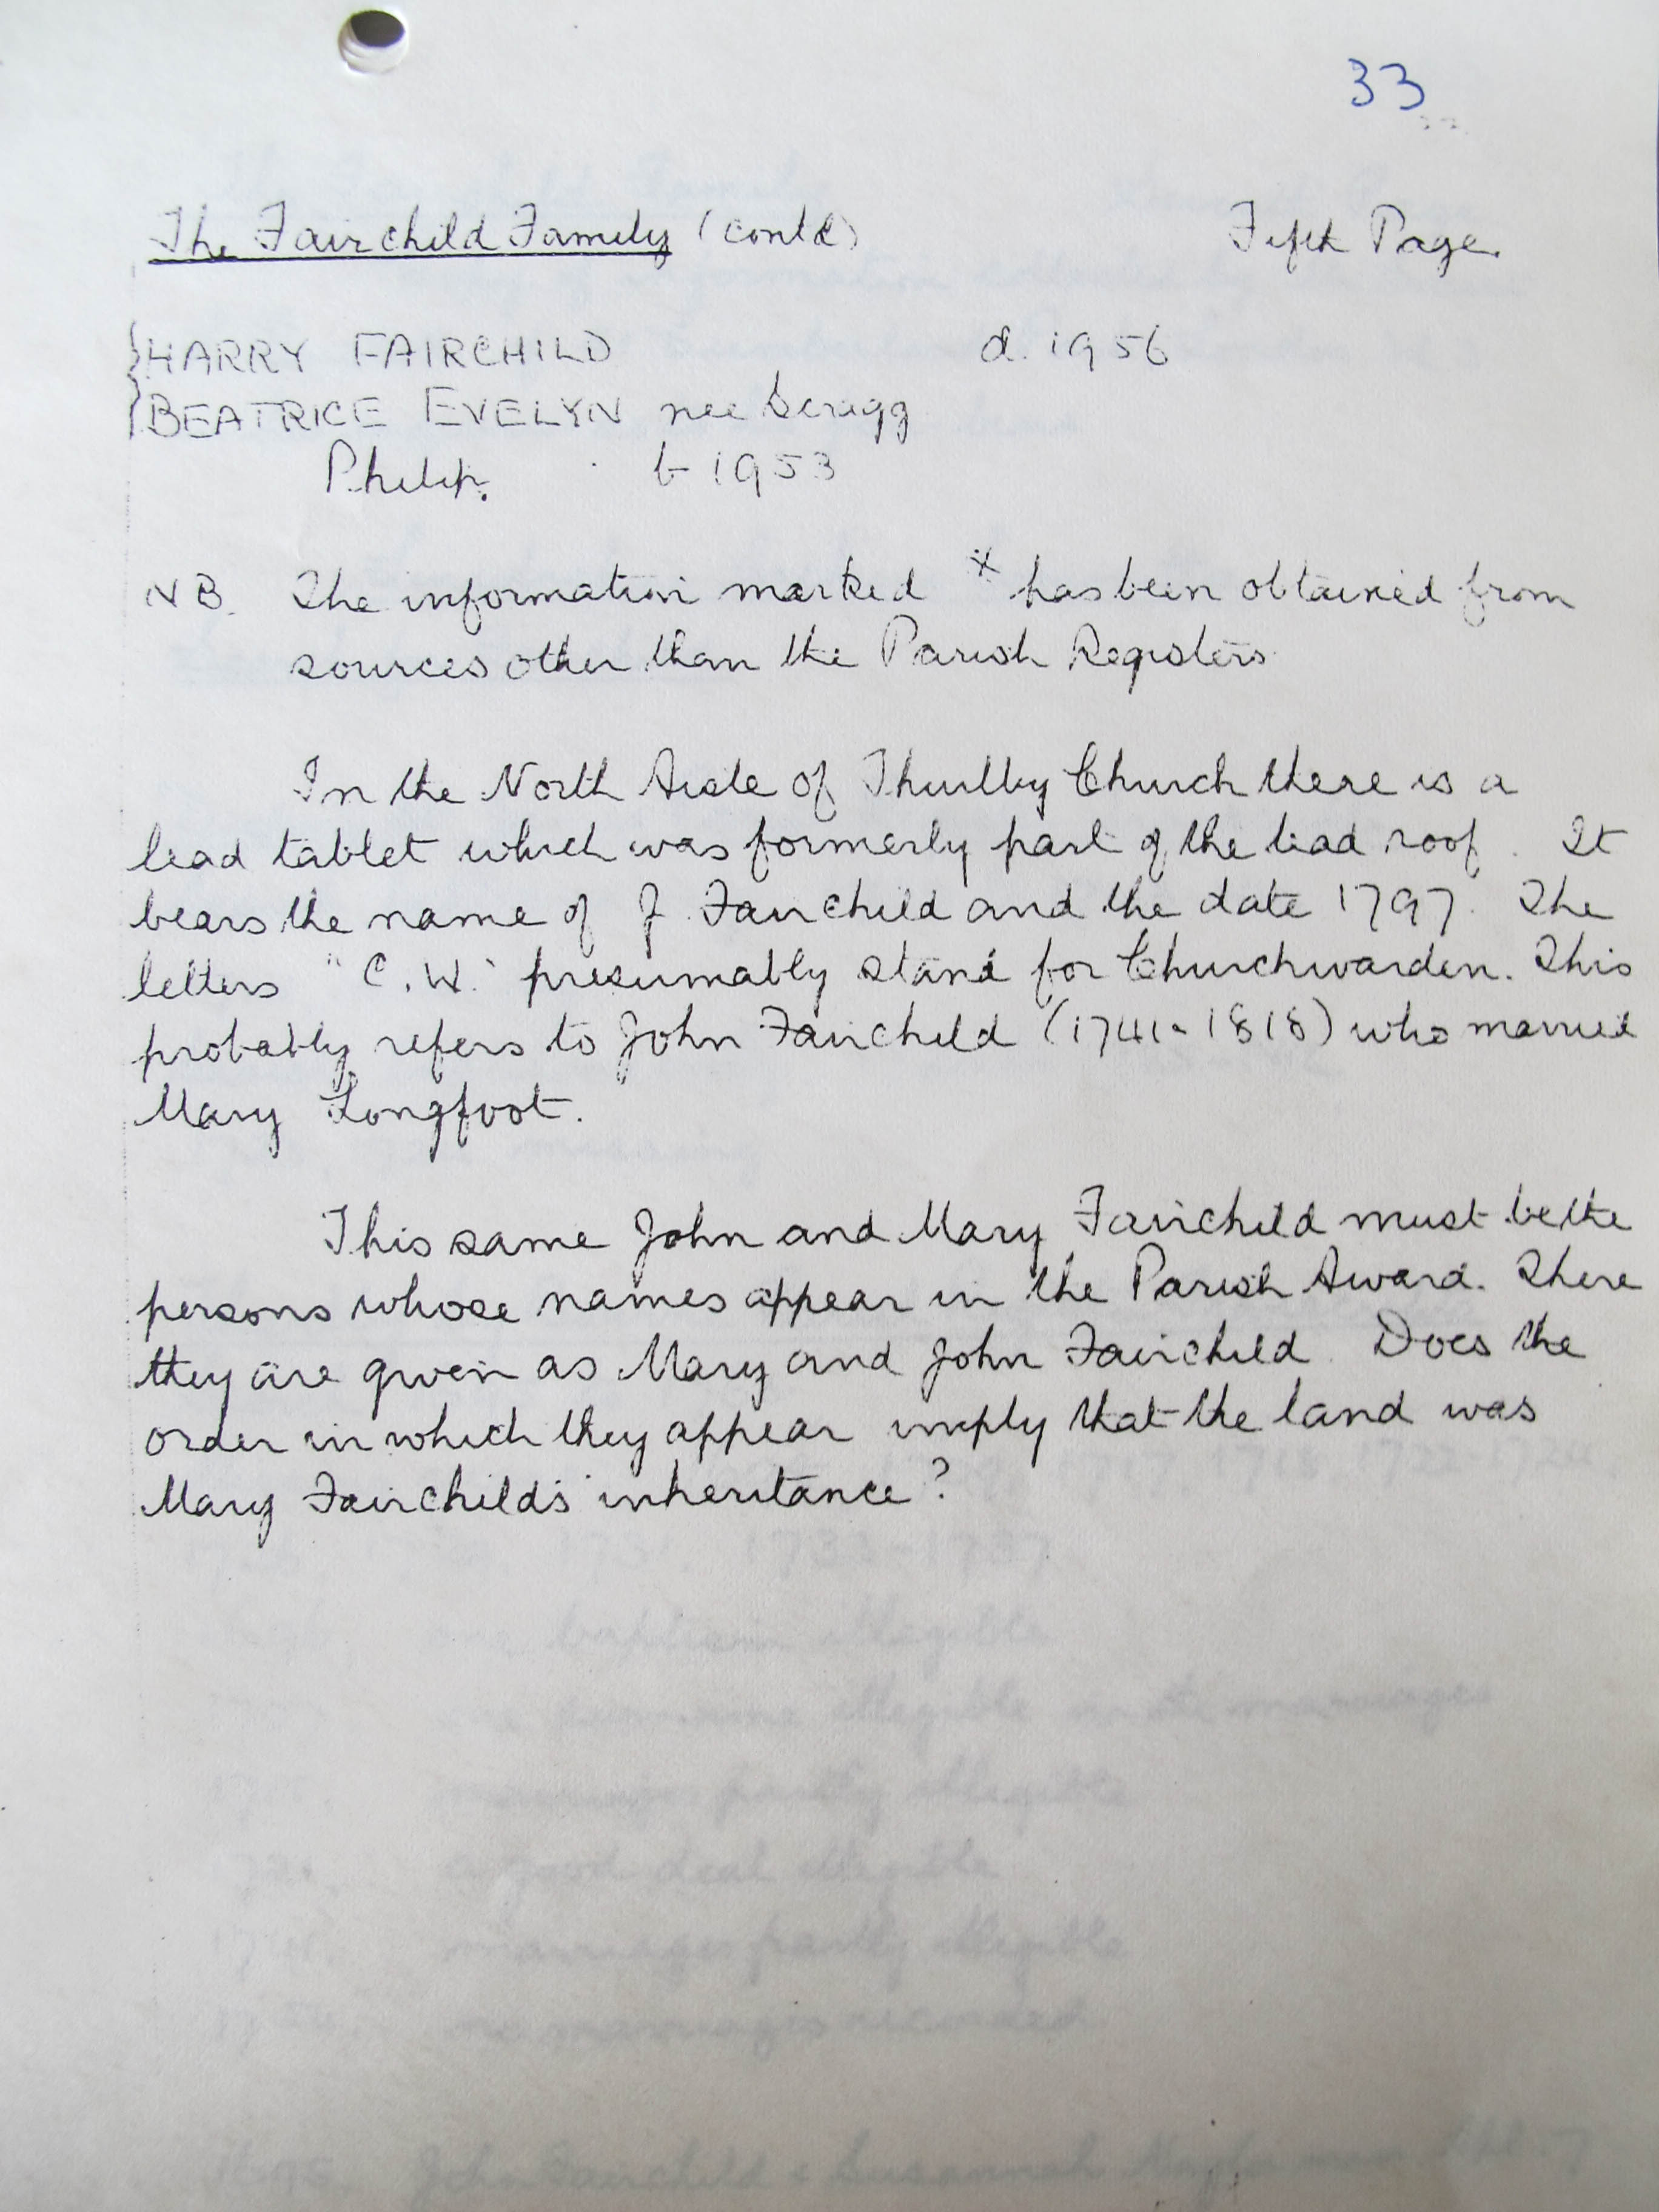 33
The Fairchild Family (contd) Fifth Page.
HARRY FAIRCHILD d. 1956
BEATRICE EVELYN nee Scrigg
Philip. b 1953
NB. The information marked x has been obtained from
sources other than the Parish Registers
In the North Aisle of Thurlby Church there is a
lead tablet which was formerly part of the lead roof. It
bears the name of J. Fairchild and the date 1797. The
letters "C.W." presumably stand for Churchwarden. This
probably refers to John Fairchild (1741-1818) who married
Mary Longfoot.
This same John and Mary Fairchild must be the
persons whose names appear in the Parish Award. There
they are given as Mary and John Fairchild. Does the
order in which they appear imply that the land was
Mary Fairchild's inheritance?